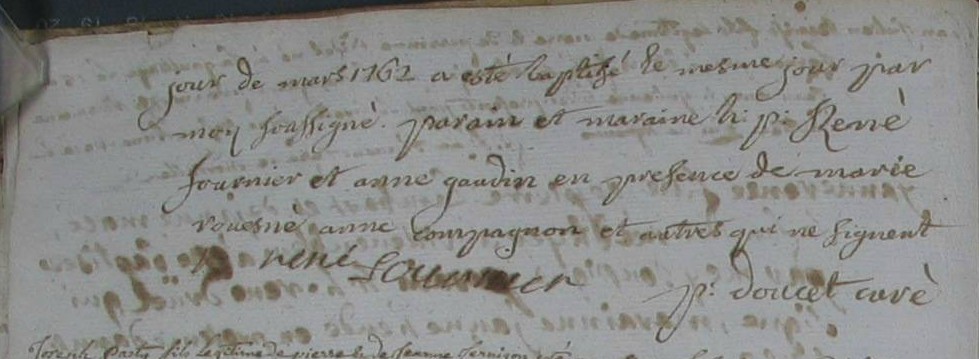 jour de mars 1762 a esté baptizé le mesme jour par
moy soussigné. parain et maraine h: p: René
fournier et anne gaudin en presence de marie
rouesné anne compagnon et autres qui ne signent
rené fournier
p: doucet curé
Joseph fils legitime de pierre & de Jeanne